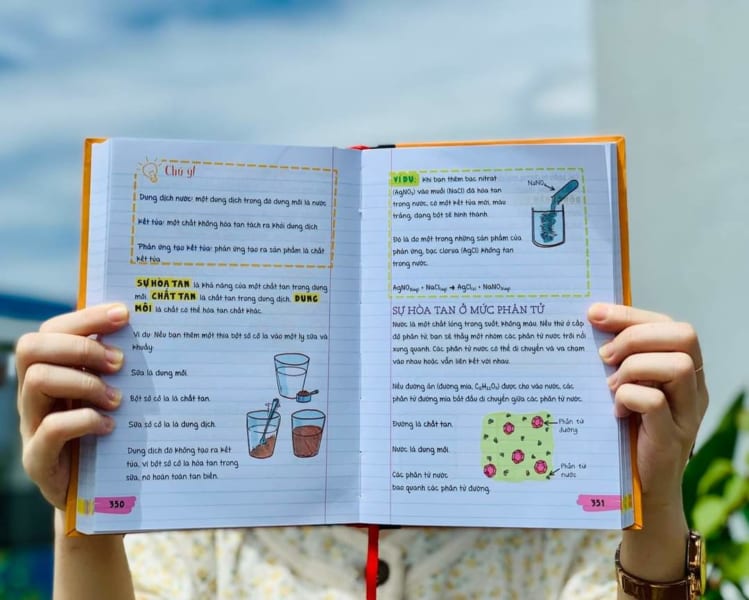 Chú ý!
Dung dịch nước: một dung dịch trong đó dung môi là nước
Kết tủa: một chất không hòa tan tách ra khỏi dung dịch
Phản ứng tạo kết tủa: phản ứng tạo ra sản phẩm là chất
kết tủa
SỰ HÒA TAN là khả năng của một chất tan trong dung
môi. CHẤT TAN là chất tan trong dung dịch. DUNG
MÔI là chất có thể hòa tan chất khác.
Ví dụ: Nếu bạn thêm một thìa bột sô cô la vào một ly sữa và
khuấy:
Sữa là dung môi.
Bột sô cô la là chất tan.
Sữa sô cô la là dung dịch.
Dung dịch đó không tạo ra kết
tủa, vì bột sô cô la hòa tan trong
sữa, nó hoàn toàn tan biến.
350
VÍ DỤ: Khi bạn thêm bạc nitrat
(AgNO₃) vào muối (NaCl) đã hòa tan
trong nước, có một kết tủa mới, màu
trắng, dạng bột sẽ hình thành.
NaNO₃
Đó là do một trong những sản phẩm của
phản ứng, bạc clorua (AgCl) không tan
trong nước.
AgNO₃ + NaCl ➔ AgCl + NaNO₃
SỰ HÒA TAN Ở MỨC PHÂN TỬ
Nước là một chất lỏng trong suốt, không màu. Nếu thử ở cấp
độ phân tử, bạn sẽ thấy một nhóm các phân tử nước trôi nổi
xung quanh. Các phân tử nước có thể di chuyển và va chạm
vào nhau hoặc vẫn liên kết với nhau.
Nếu đường ăn (đường mía, C₆H₁₂O₆) được cho vào nước, các
phân tử đường mía bắt đầu di chuyển giữa các phân tử nước.
Đường là chất tan.
Phân tử
đường
Nước là dung môi.
Các phân tử nước
bao quanh các phân tử đường.
Phân tử
nước
351